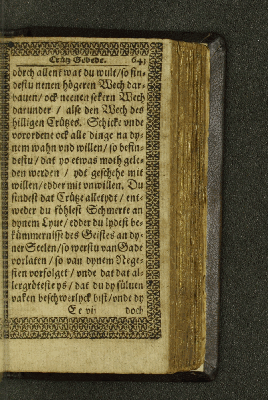 Crütz Gebede. 641
dörch allent wat du wult/so fin-
destu nenen högeren Wech dar-
bauen/ ock neenen sekern Wech
darunder / alse den Wech des
hilligen Crützes. Schicke vnde
vorordene ock alle dinge na dy-
nem wahn vnd willen/ so befin-
destu/ dat yo etwas moth gele-
den werden / ydt geschehe mit
willen/edder mit vnwillen. Du
findest dat Crütze alletydt / ent-
weder du föhlest Schmerte an
dynem Lyue/ edder du lydest be-
kümmernisse des Geistes an dy-
ner Seelen/so werstu van Gade
vorlaten / so van dynem Nege-
sten vorfolget / vnde dat dat al-
lergrötteste ys/ dat du dy sülven
vaken beschwerlyck bist/vnde dy
Ee vij doch